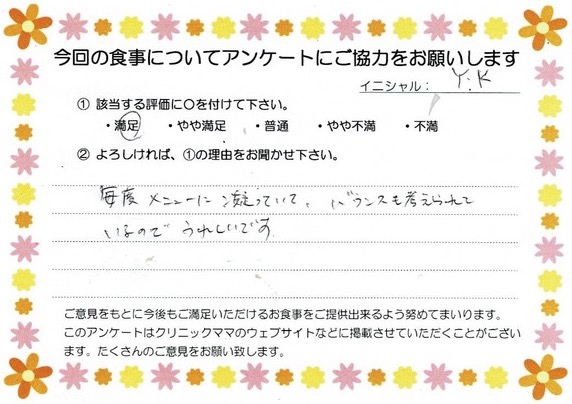 今回の食事についてアンケートにご協力をお願いします
イニシャル： Y.K
① 該当する評価に〇を付けて下さい。
・満足 ・やや満足 ・普通 ・やや不満 ・不満
② よろしければ、①の理由をお聞かせ下さい。
毎度メニューに凝っていて、バランスも考えられて
いるのでうれしいです。
ご意見をもとに今後もご満足いただけるお食事をご提供出来るよう努めてまいります。
このアンケートはクリニックママのウェブサイトなどに掲載させていただくことがござい
ます。たくさんのご意見をお願い致します。